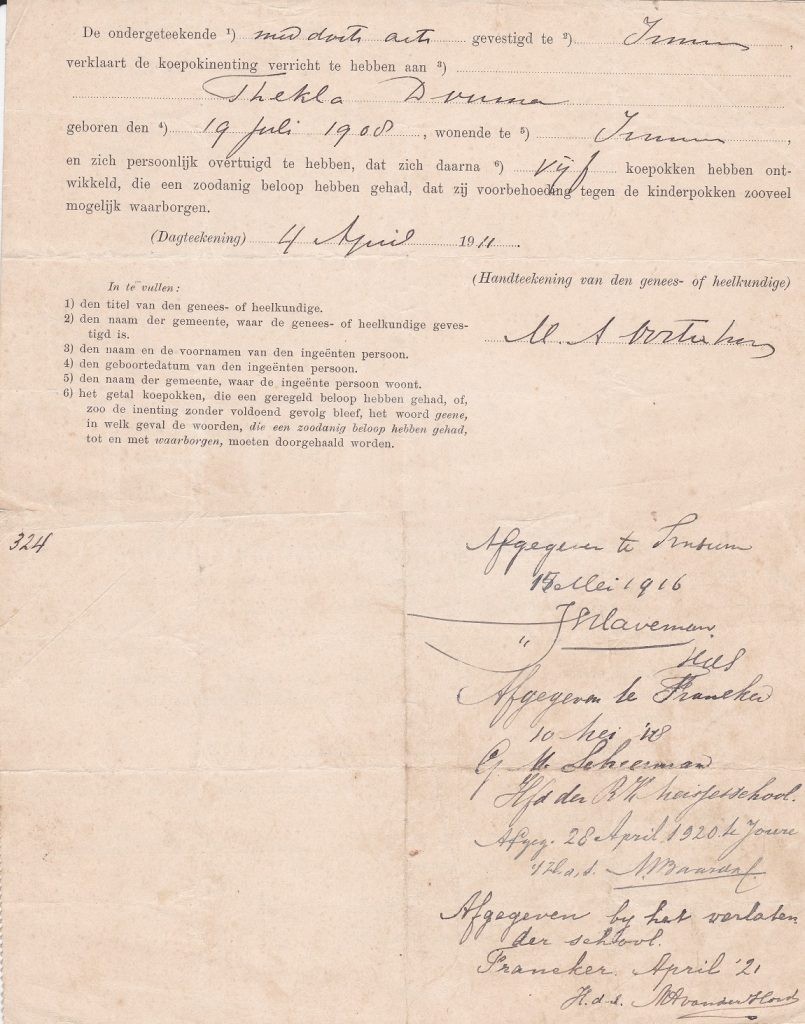 De ondergeteekende ¹) med docts arts gevestigd te ²) Irnsum,
verklaart de koepokinenting verricht te hebben aan ³)
Thekla Douma
geboren den ⁴) 19 Juli 1908, wonende te ⁵) Irnsum,
en zich persoonlijk overtuigd te hebben, dat zich daarna ⁶) vijf koepokken hebben ont-
wikkeld, die een zoodanig beloop hebben gehad, dat zij voorbehoeding tegen de kinderpokken zooveel
mogelijk waarborgen.
(Dagteekening) 4 April 1911.
(Handteekening van den genees- of heelkundige)
In te vullen:
1) den titel van den genees- of heelkundige.
2) den naam der gemeente, waar de genees- of heelkundige geves-
tigd is.
3) den naam en de voornamen van den ingeënten persoon.
4) den geboortedatum van den ingeënten persoon.
5) den naam der gemeente, waar de ingeënte persoon woont.
6) het getal koepokken, die een geregeld beloop hebben gehad, of,
zoo de inenting zonder voldoend gevolg bleef, het woord geene,
in welk geval de woorden, die een zoodanig beloop hebben gehad,
tot en met waarborgen, moeten doorgehaald worden.
M. A
324
Afgegeven te Irnsum
Mei 1916
Haveman
HdS
Afgegeven te Franeker
10 Mei '18
G. M. Scheerman
Hfd der R K meisjesschool.
Afgeg. 28 April 1920 te Joure
H. d. S.
Afgegeven bij het verlaten
der school.
Franeker. April '21
H. d. S.